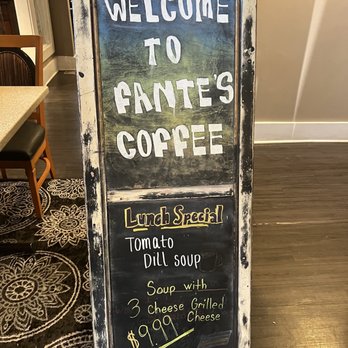 WELCOME
TO
FANTE'S
COFFEE
Lunch Special
Tomato
Dill soup
Soup with
3 cheese Grilled
Cheese
$9.99